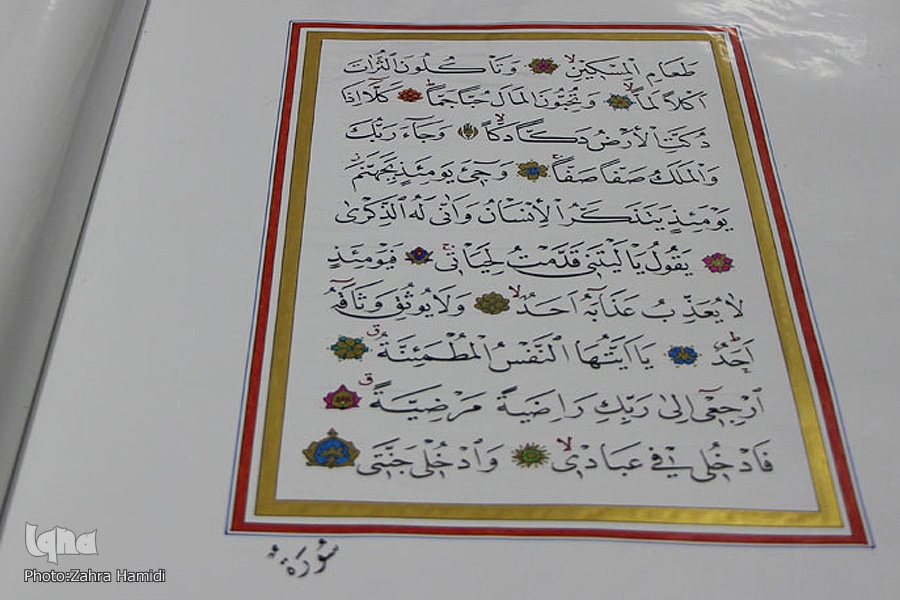 طَعَامِ الْمِسْكِينِ وَتَأْكُلُونَ التُّرَاثَ
اَكْلاً لَمّاً وَتُحِبُّونَ الْمَالَ حُبّاً جَمّاً كَلَّا اِذَا
دُكَّتِ الْاَرْضُ دَكّاً دَكّاً وَجَاءَ رَبُّكَ
وَالْمَلَكُ صَفّاً صَفّاً وَجِيءَ يَوْمَئِذٍ بِجَهَنَّمَ
يَوْمَئِذٍ يَتَذَكَّرُ الْاِنْسَانُ وَاَنّٰى لَهُ الذِّكْرٰى
يَقُولُ يَا لَيْتَنِي قَدَّمْتُ لِحَيَاتِي فَيَوْمَئِذٍ
لَا يُعَذِّبُ عَذَابَهُ اَحَدٌ وَلَا يُوثِقُ وَثَاقَهُ
اَحَدٌ يَا اَيَّتُهَا النَّفْسُ الْمُطْمَئِنَّةُ
اِرْجِعِي اِلٰى رَبِّكِ رَاضِيَةً مَرْضِيَّةً
فَادْخُلِي فِي عِبَادِي وَادْخُلِي جَنَّتِي
سُورَةُ
iqna
Photo:Zahra Hamidi